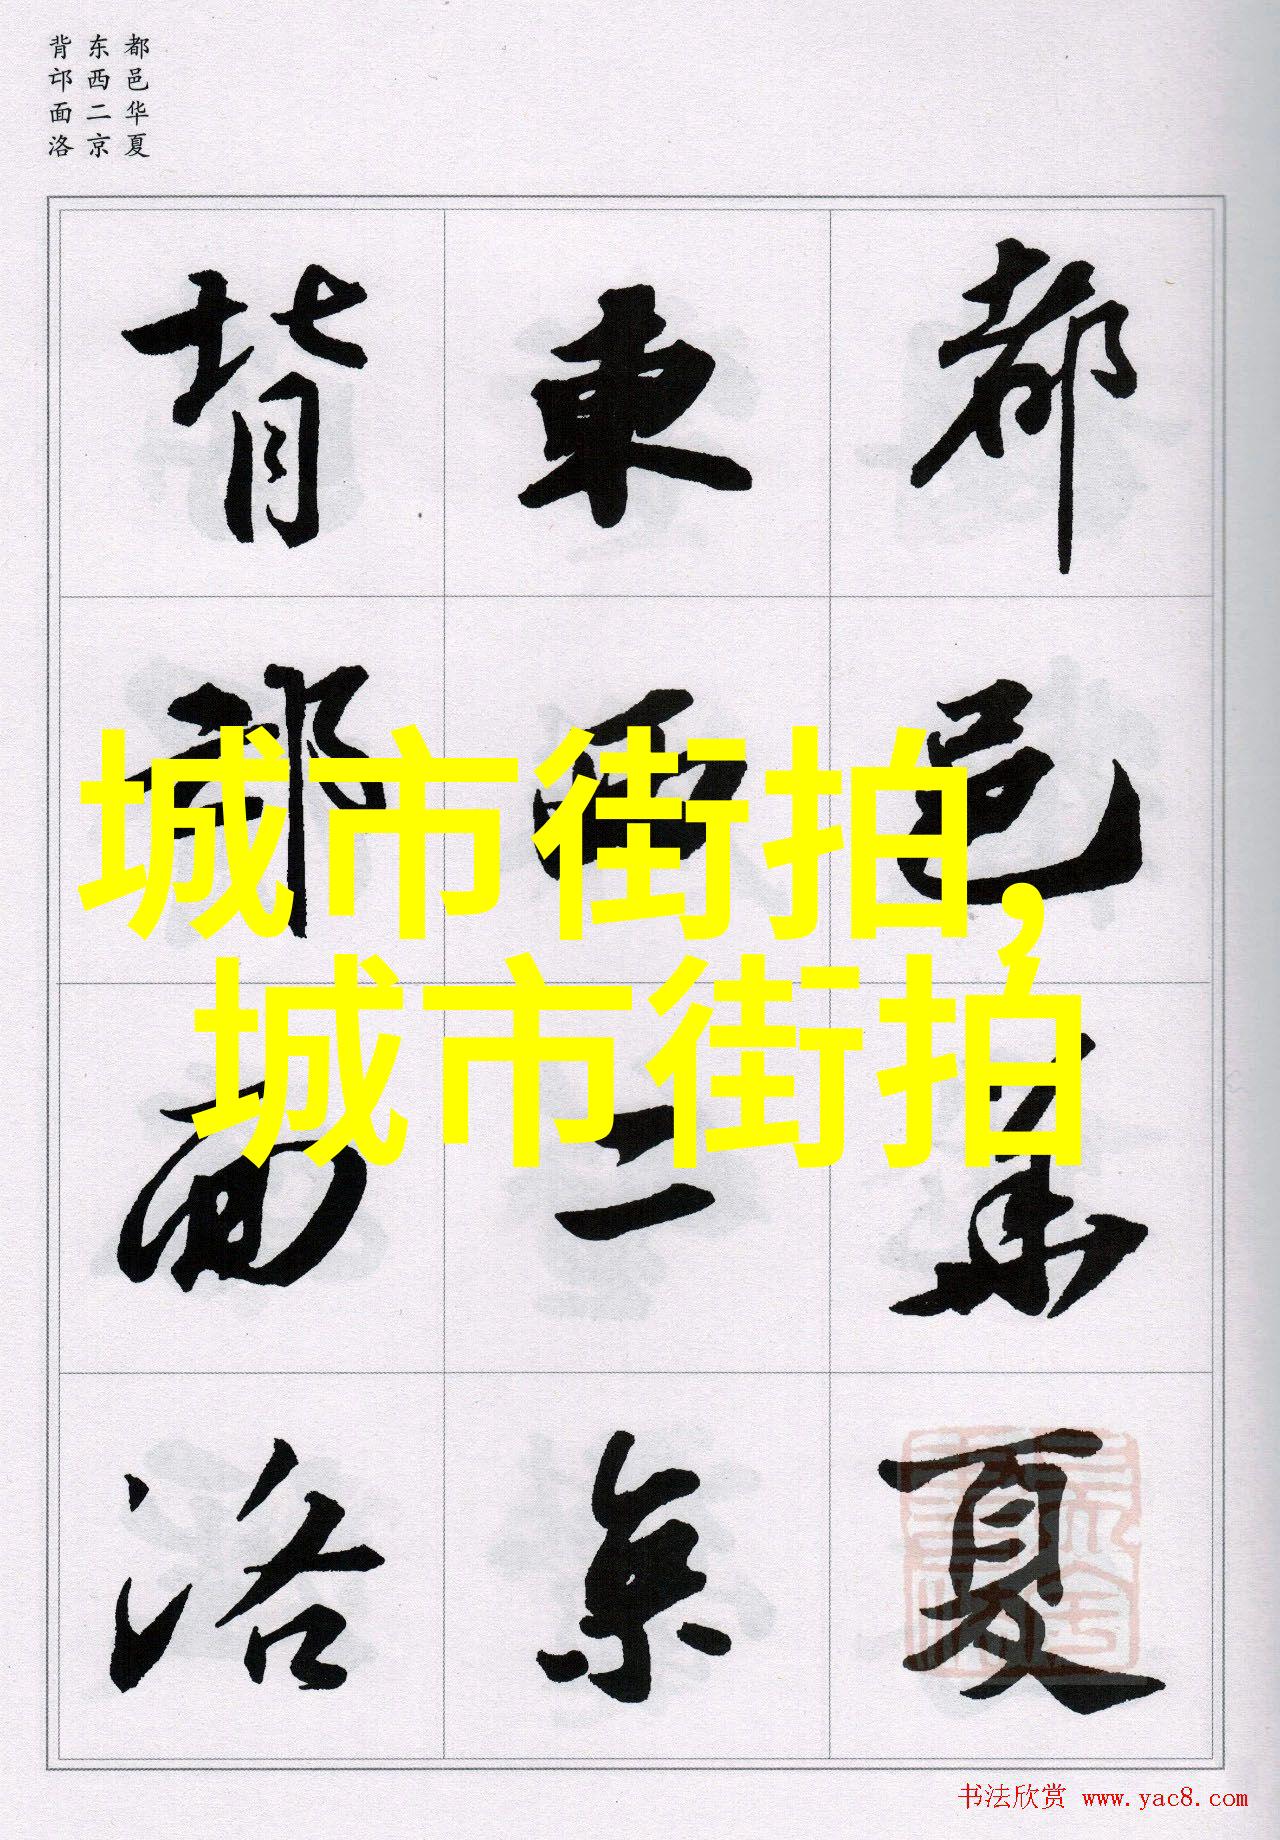 都邑华夏
东西二京
背邙面洛
都邑華夏
東西二京
背邙面洛
城市街拍,
城市街拍
书法欣赏 www.yac8.com